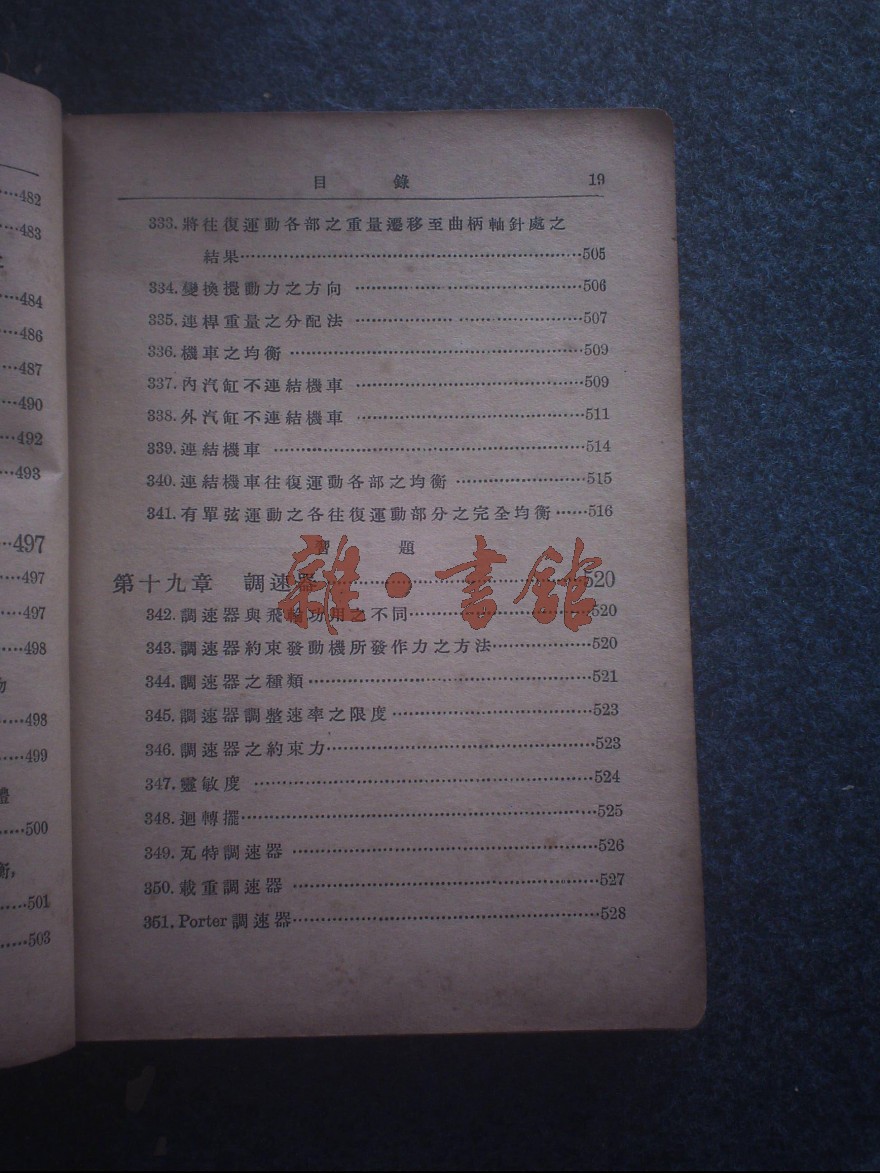 482
483
484
486
487
490
492
493
497
497
497
498
498
499
500
501
503
目錄 19
333.將往復運動各部之重量遷移至曲柄軸針處之
結果……505
334.變換攪動力之方向……506
335.連桿重量之分配法……507
336.機車之均衡……509
337.內汽缸不連結機車……509
338.外汽缸不連結機車……511
339.連結機車……514
340.連結機車往復運動各部之均衡……515
341.有單弦運動之各往復運動部分之完全均衡……516
習題
第十九章 調速器……520
342.調速器與飛輪功用之不同……520
343.調速器約束發動機所發作力之方法……520
344.調速器之種類……521
345.調速器調整速率之限度……523
346.調速器之約束力……523
347.靈敏度……524
348.迴轉擺……525
349.瓦特調速器……526
350.載重調速器……527
351.Porter調速器……528
雜·書館